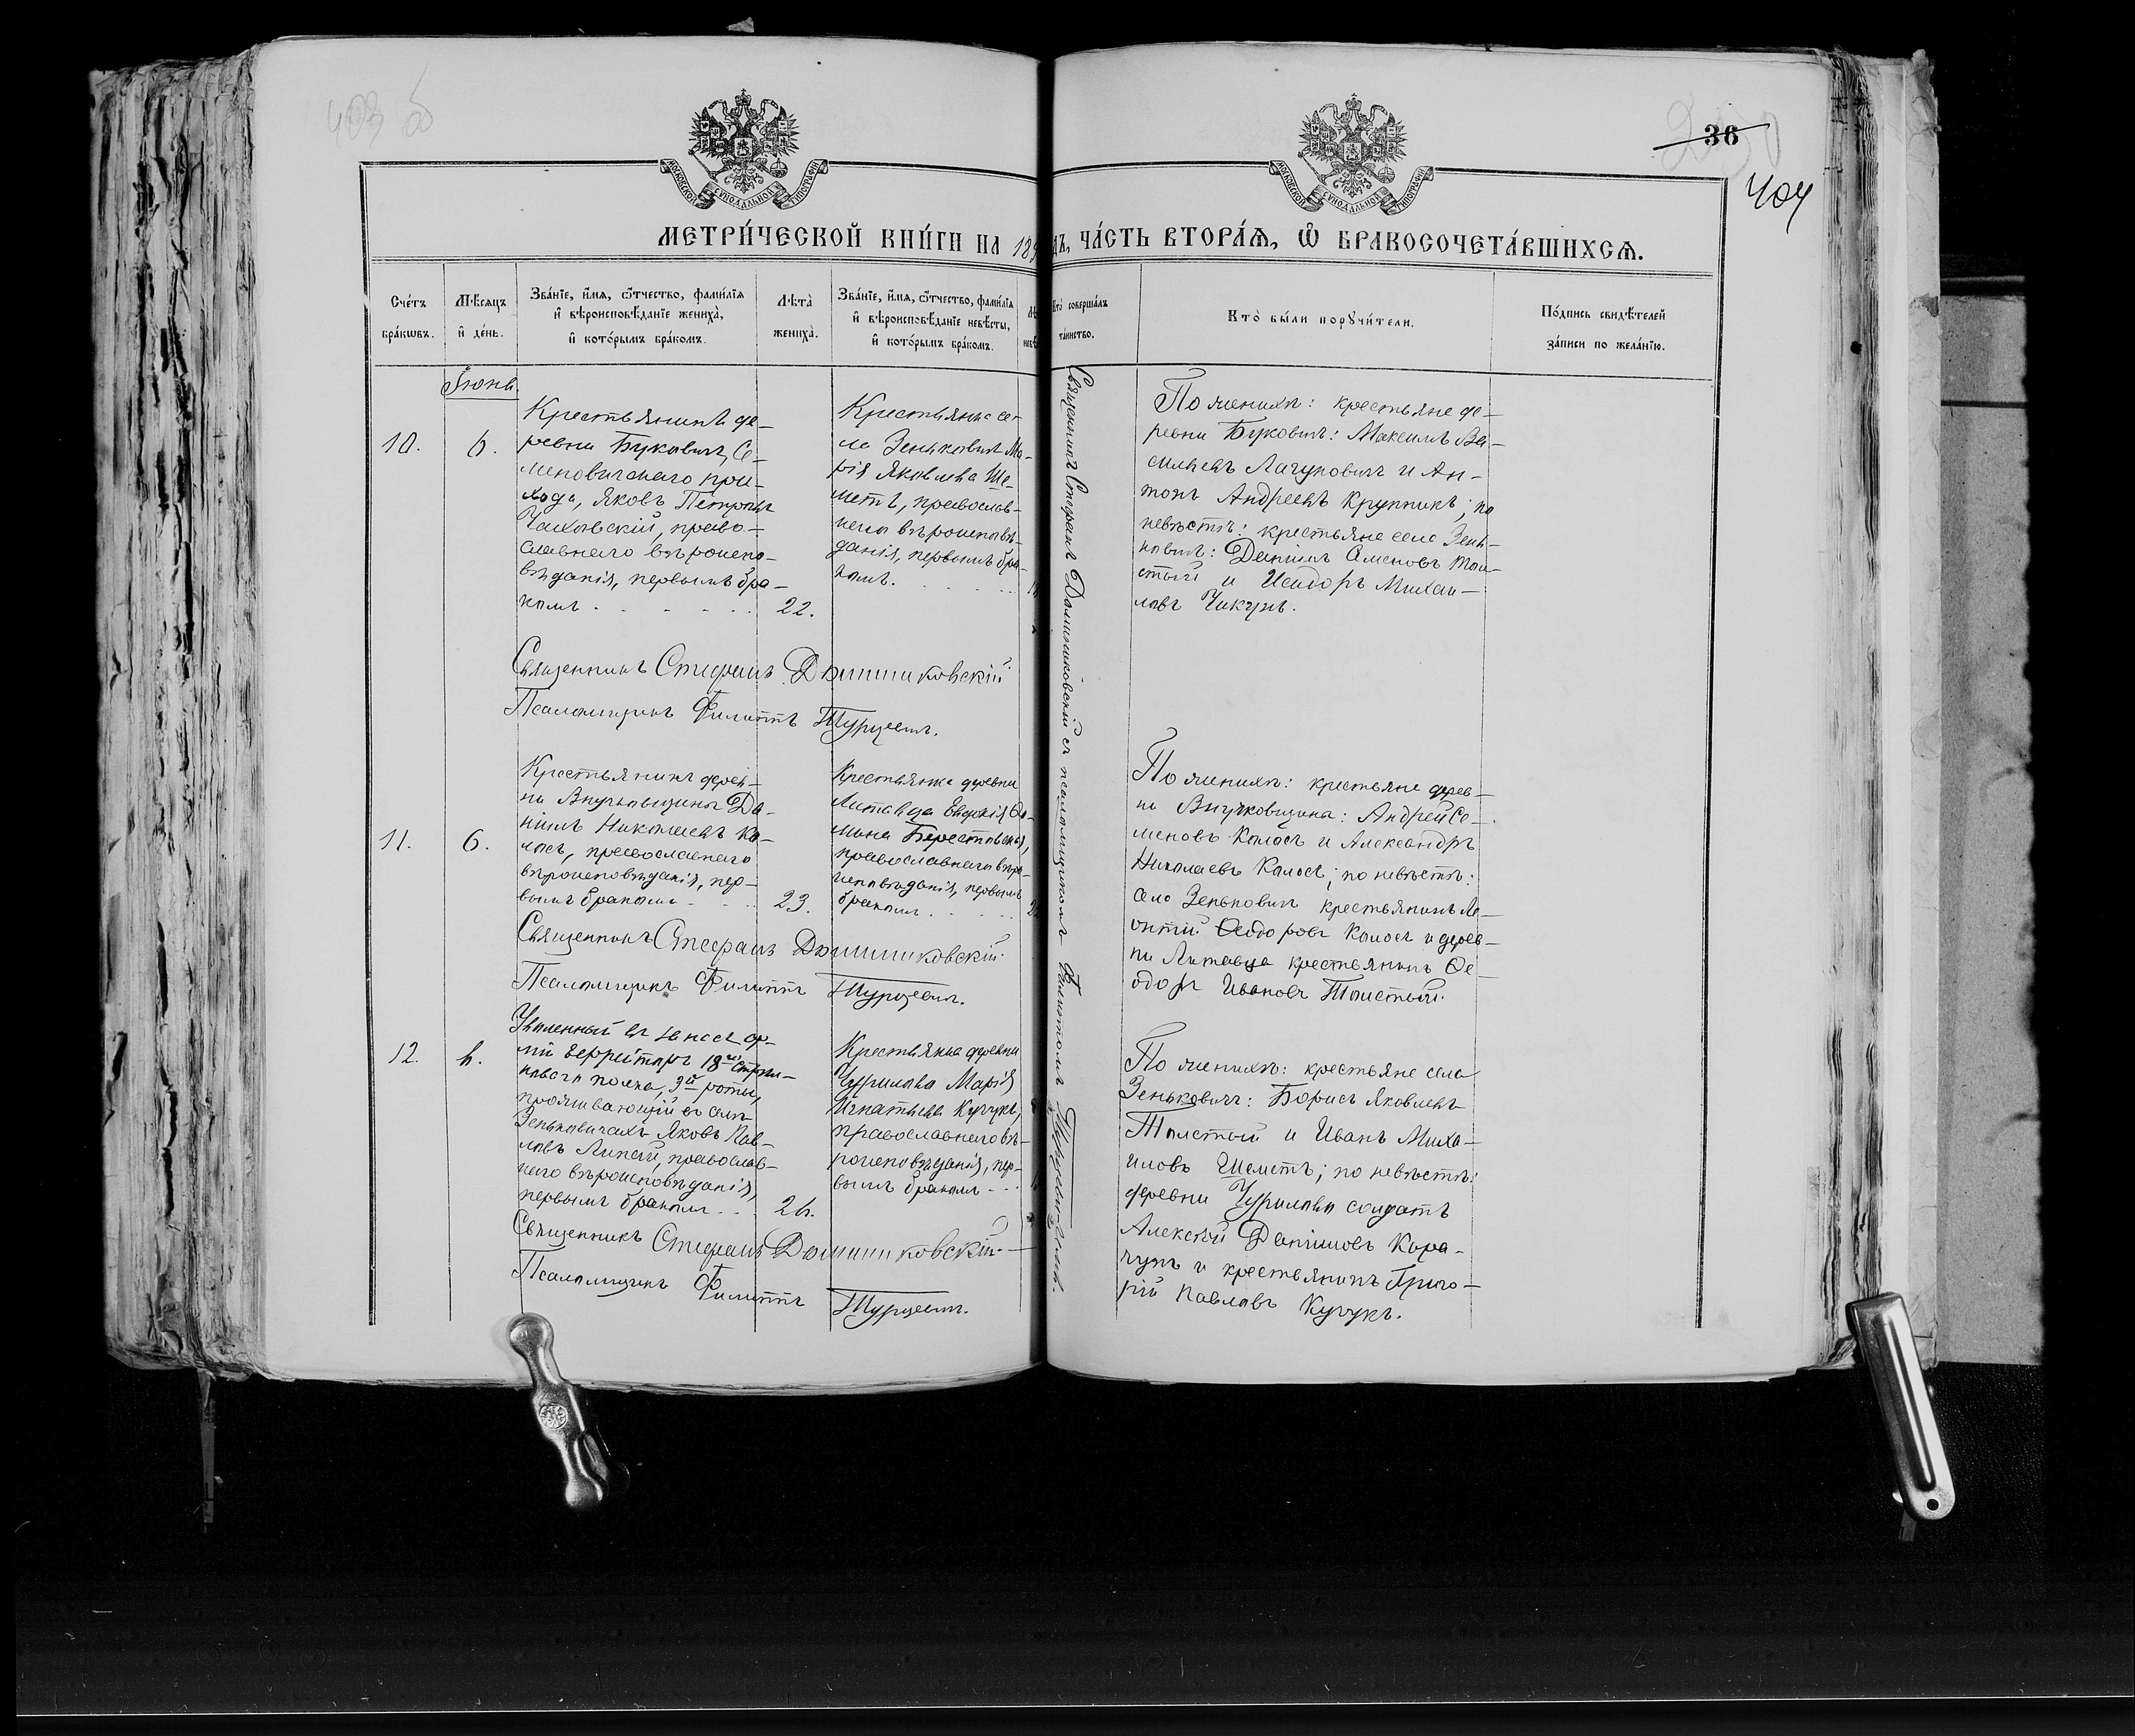 403 об
36
404
МОСКОВСКОЙ СѴНОДАЛЬНОЙ ТИПОГРАФІИ
МОСКОВСКОЙ СѴНОДАЛЬНОЙ ТИПОГРАФІИ
МЕТРИ́ЧЕСКОЙ КНИ́ГИ НА 189
ДЪ, ЧА́СТЬ ВТОРА́Ѧ, Ѽ БРАКОСОЧЕТА́ВШИХСѦ.
Сче́тъ
бра́кѡвъ.
Мѣ́сяцъ
и҆ де́нь.
Зва́нїе, и҆́мѧ, ѻ҆́тчество, фами́лїѧ
и҆ вѣроисповѣ́данїе жениха̀,
и҆ кото́рымъ бра́комъ.
Лѣта̀
жениха̀.
Зва́нїе, и҆́мѧ, ѻ҆́тчество, фами́лїѧ
и҆ вѣроисповѣ́данїе невѣ́сты,
и҆ кото́рымъ бра́комъ.
Кто̀ соверша́лъ
та́инство.
Кто̀ бы́ли порꙋчи́тели.
По́дпись свидѣ́телей
за́писи по жела́нїю.
Іюнь.
10.
6.
Крестьянинъ де-
ревни Буковичъ, Се-
меновичскаго при-
хода, Яковъ Петровъ
Чаховскій, право-
славнаго вѣроиспо-
вѣданія, первымъ бра-
комъ
22.
Крестьянка се-
ла Зеньковичъ Ма-
рія Яковлева Ше-
метъ, православ-
наго вѣроисповѣ-
данія, первымъ бра-
комъ.
По женихѣ: крестьяне де-
ревни Буковичъ: Максимъ Ва-
сильевъ Лагуновичъ и Ан-
тонъ Андреевъ Крупникъ; по
невѣстѣ: крестьяне села Зень-
ковичъ: Даніилъ Семеновъ Тол-
стый и Исидоръ Михаи-
ловъ Чикунъ.
Священникъ Стефанъ Домниковскій
Псаломщикъ Филиппъ Турцевичъ.
11.
6.
Крестьянинъ дерев-
ни Внучковщины Да-
ніилъ Николаевъ Ко-
лосъ, православнаго
вѣроисповѣданія, пер-
вымъ бракомъ
23.
Крестьянка деревни
Литавца
мина Берестовская,
православнаго вѣро-
исповѣданія, первымъ
бракомъ
По женихѣ: крестьяне дерев-
ни Внучковщина: Андрей Се-
меновъ Колосъ и Александръ
Николаевъ Колосъ; по невѣстѣ:
села Зеньковичъ крестьянинъ Ле-
онтій Ѳеодоровъ Колосъ и дерев-
ни Литавца крестьянинъ Ѳе-
одоръ Ивановъ Толстый.
Священникъ Стефанъ Домниковскій
Псаломщикъ Филиппъ Турцевичъ.
12.
6.
Уволенный въ запасъ ар-
міи Ефрейторъ 18го Стрѣл-
коваго полка, 3й роты,
проживающій въ селѣ
Зеньковичахъ Яковъ Пав-
ловъ Липай, православ-
наго вѣроисповѣданія,
первымъ бракомъ
26.
Крестьянка деревни
Чурилова Марія
Игнатьева Кучукъ,
православнаго вѣ-
роисповѣданія, пер-
вымъ бракомъ
По женихѣ: крестьяне села
Зеньковичъ: Борисъ Яковлевъ
Толстый и Иванъ Миха-
иловъ Шеметъ; по невѣстѣ:
деревни Чурилова солдатъ
Алексѣй Даніиловъ Кора-
чунъ и крестьянинъ Григо-
рій Павловъ Кучукъ.
Священникъ Стефанъ Домниковскій
Псаломщикъ Филиппъ Турцевичъ.
Священникъ Стефанъ Домниковскій съ псаломщикомъ Филиппомъ Турцевичемъ.